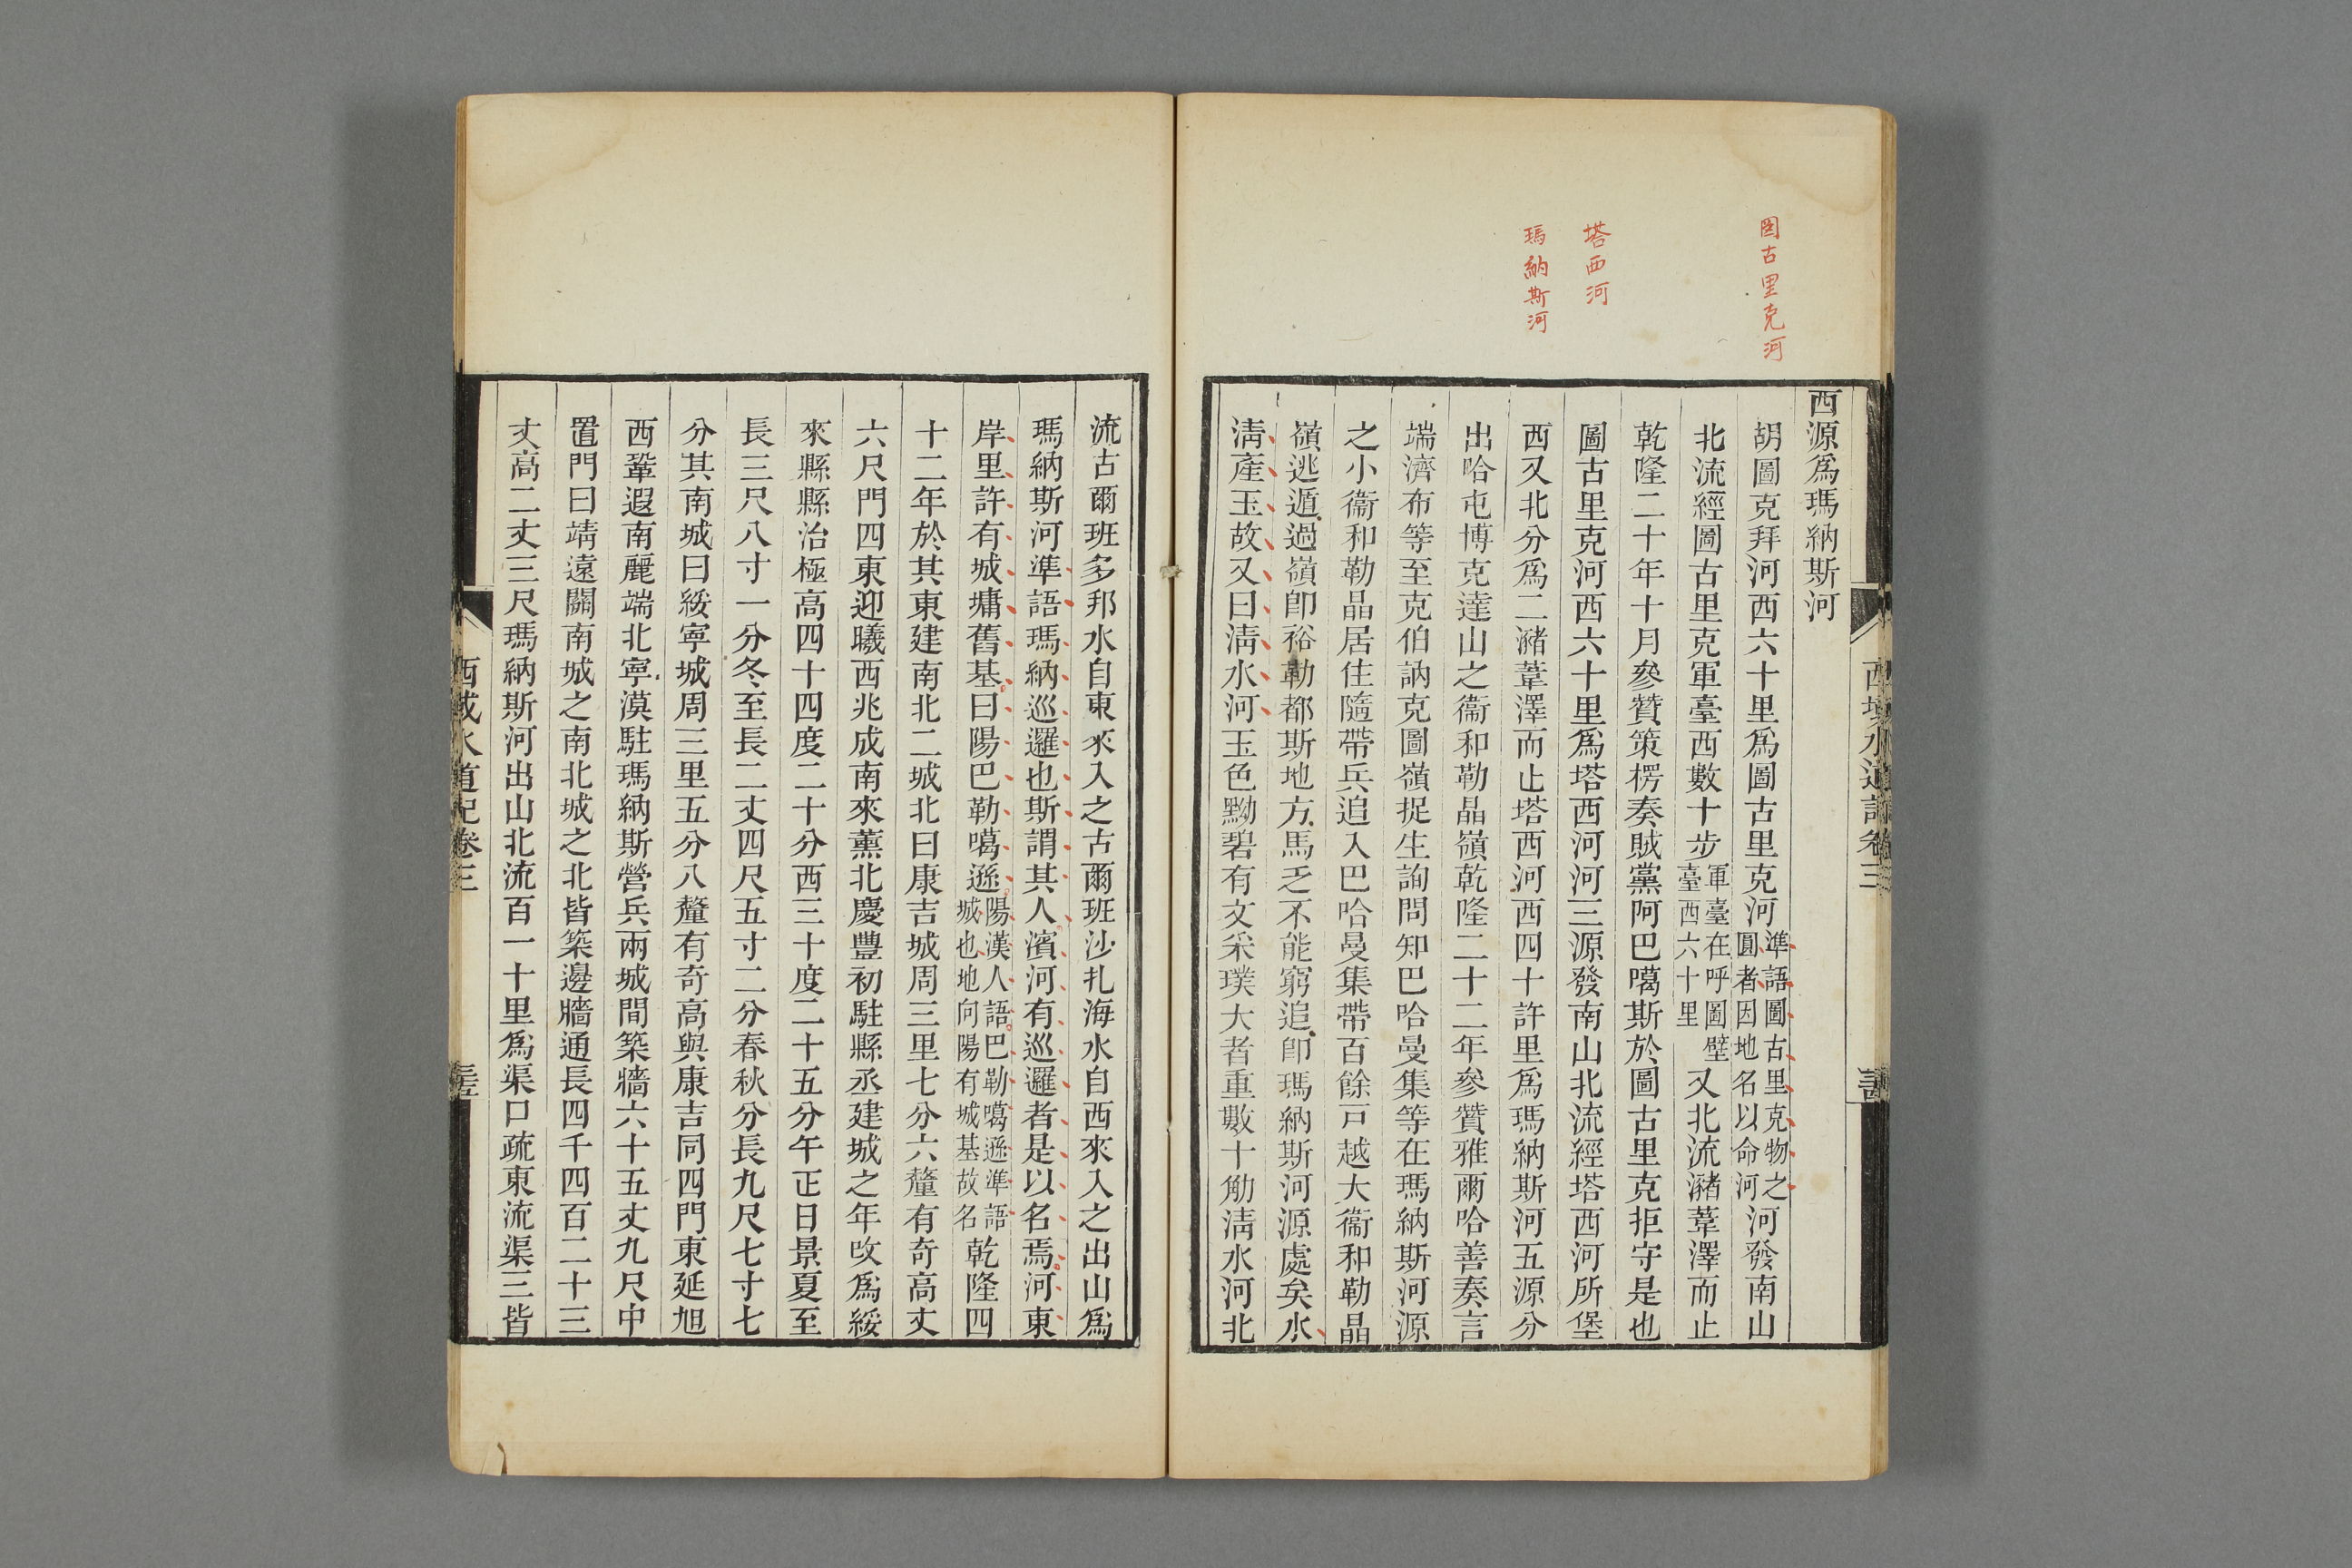 圖古里克河
塔西河
瑪納斯河
西源爲瑪納斯河
胡圖克拜河西六十里爲圖古里克河準語圖古里克物之圓者因地名以命河河發南山
北流經圖古里克軍臺西數十步軍臺在呼圖壁臺西六十里又北流瀦葦澤而止
乾隆二十年十月參贊策楞奏賊黨阿巴噶斯於圖古里克拒守是也
圖古里克河西六十里爲塔西河河三源發南山北流經塔西河所堡
西又北分爲二瀦葦澤而止塔西河西四十許里爲瑪納斯河五源分
出哈屯博克達山之衞和勒晶嶺乾隆二十二年參贊雅爾哈善奏言
端濟布等至克伯訥克圖嶺捉生詢問知巴哈曼集等在瑪納斯河源
之小衞和勒晶居住隨帶兵追入巴哈曼集帶百餘戸越大衞和勒晶
嶺逃遁過嶺卽裕勒都斯地方馬乏不能窮追卽瑪納斯河源處矣水
淸產玉故又曰淸水河玉色黝碧有文采璞大者重數十觔淸水河北
西域水道記卷三
流古爾班多邦水自東來入之古爾班沙扎海水自西來入之出山爲
瑪納斯河準語瑪納巡邏也斯謂其人濱河有巡邏者是以名焉河東
岸里許有城墉舊基曰陽巴勒噶遜陽漢人語巴勒噶遜準語城也地向陽有城基故名乾隆四
十二年於其東建南北二城北曰康吉城周三里七分六釐有奇高丈
六尺門四東迎曦西兆成南來薰北慶豐初駐縣丞建城之年攺爲綏
來縣縣治極高四十四度二十分西三十度二十五分午正日景夏至
長三尺八寸一分冬至長二丈四尺五寸二分春秋分長九尺七寸七
分其南城曰綏寧城周三里五分八釐有奇高與康吉同四門東延旭
西鞏遐南麗端北寧漠駐瑪納斯營兵兩城間築牆六十五丈九尺中
置門曰靖遠關南城之南北城之北皆築邊牆通長四千四百二十三
丈高二丈三尺瑪納斯河出山北流百一十里爲渠口疏東流渠三皆
西域水道記卷三